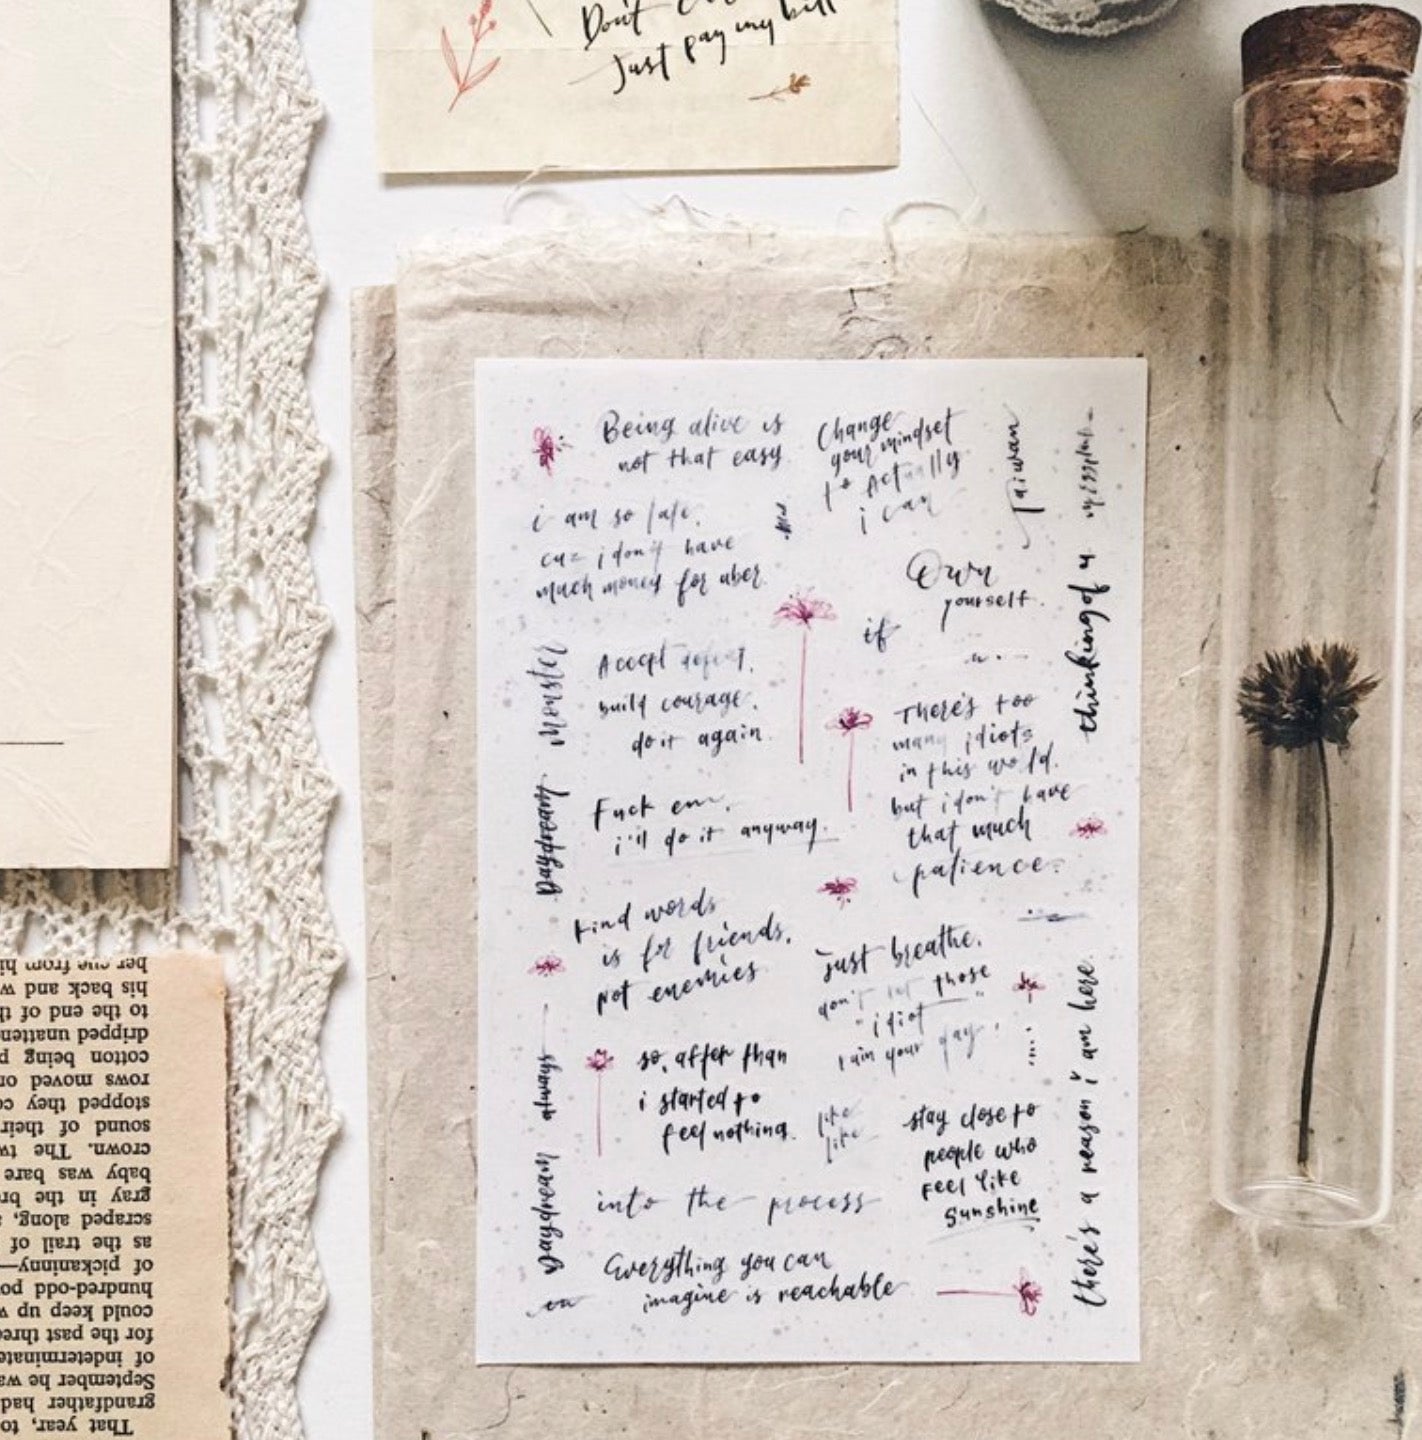 Don't
Just pay my bill
Being alive is
not that easy
Change
your mindset
to Actually
i can
Taiwan
thinking of u
i am so late.
cuz i don't have
much money for uber
Own
yourself.
if
Accept defeat,
build courage,
do it again
Monster
There's too
many idiots
in this world.
but i don't have
that much
patience.
Daydream
Fuck em,
i'll do it anyway.
Kind words
is for friends,
not enemies
Just breathe.
don't let those
"idiot"
rain your day.
so, after than
i started to
feel nothing.
like
like
always
Daydream
stay close to
people who
feel like
sunshine
there's a reason i am here.
into the process
Everything you can
imagine is reachable
her cue from
his back and
to the end of
dripped
cotton being
rows moved
stopped they
sound of their
crown. The
baby was bare
gray in the
scraped along,
as the trail of
of pickaninny—
hundred-odd
could keep up
for the past three
of indeterminate
September he
grandfather had
That year, to